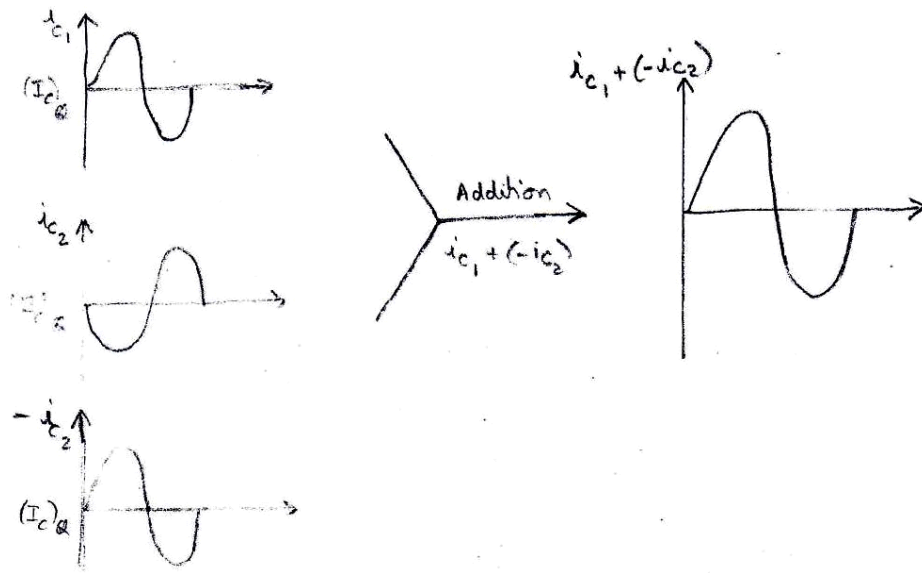 i_c₁
(I_c)_Q
i_c₂
(I_c)_Q
- i_c₂
(I_c)_Q
Addition
i_c₁ + (-i_c₂)
i_c₁ + (-i_c₂)